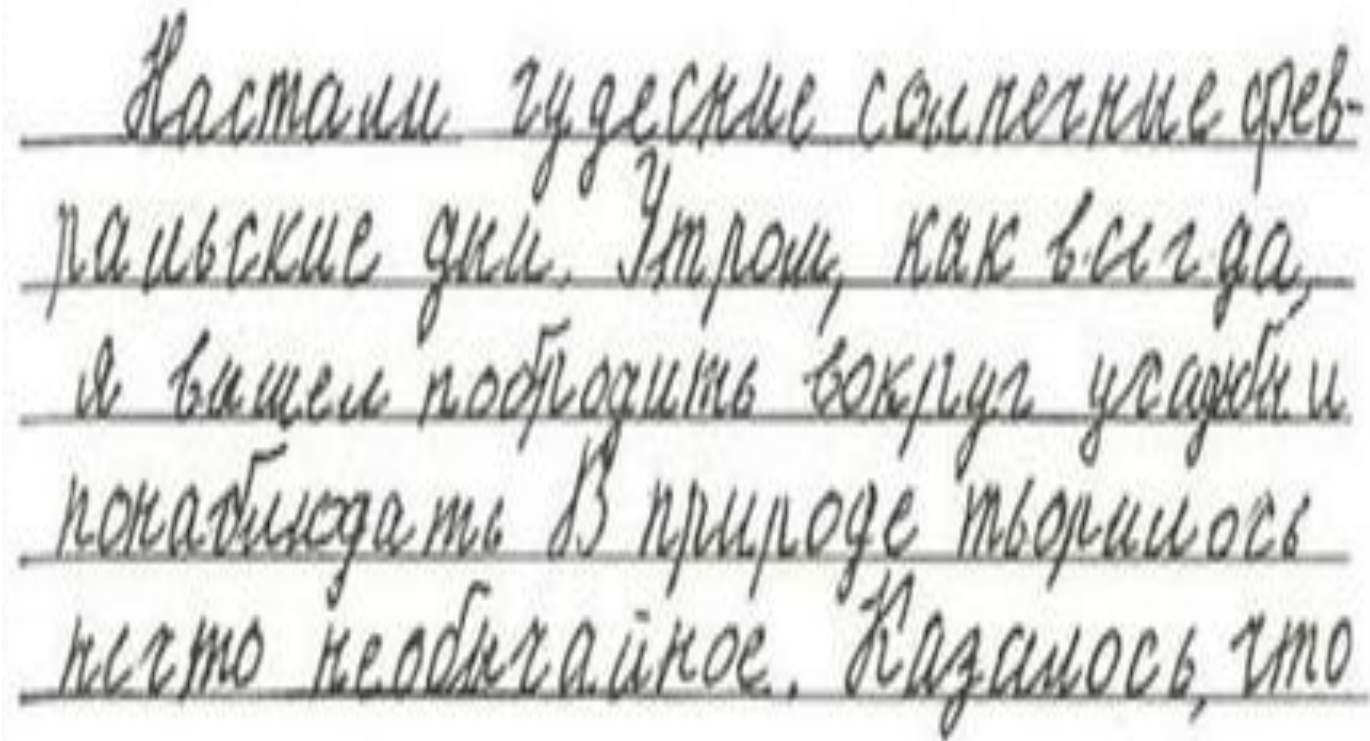 Настали чудесные солнечные фев-
ральские дни. Утром, как всегда,
я вышел побродить вокруг усадьбы и
понаблюдать В природе творилось
нечто необычайное. Казалось, что